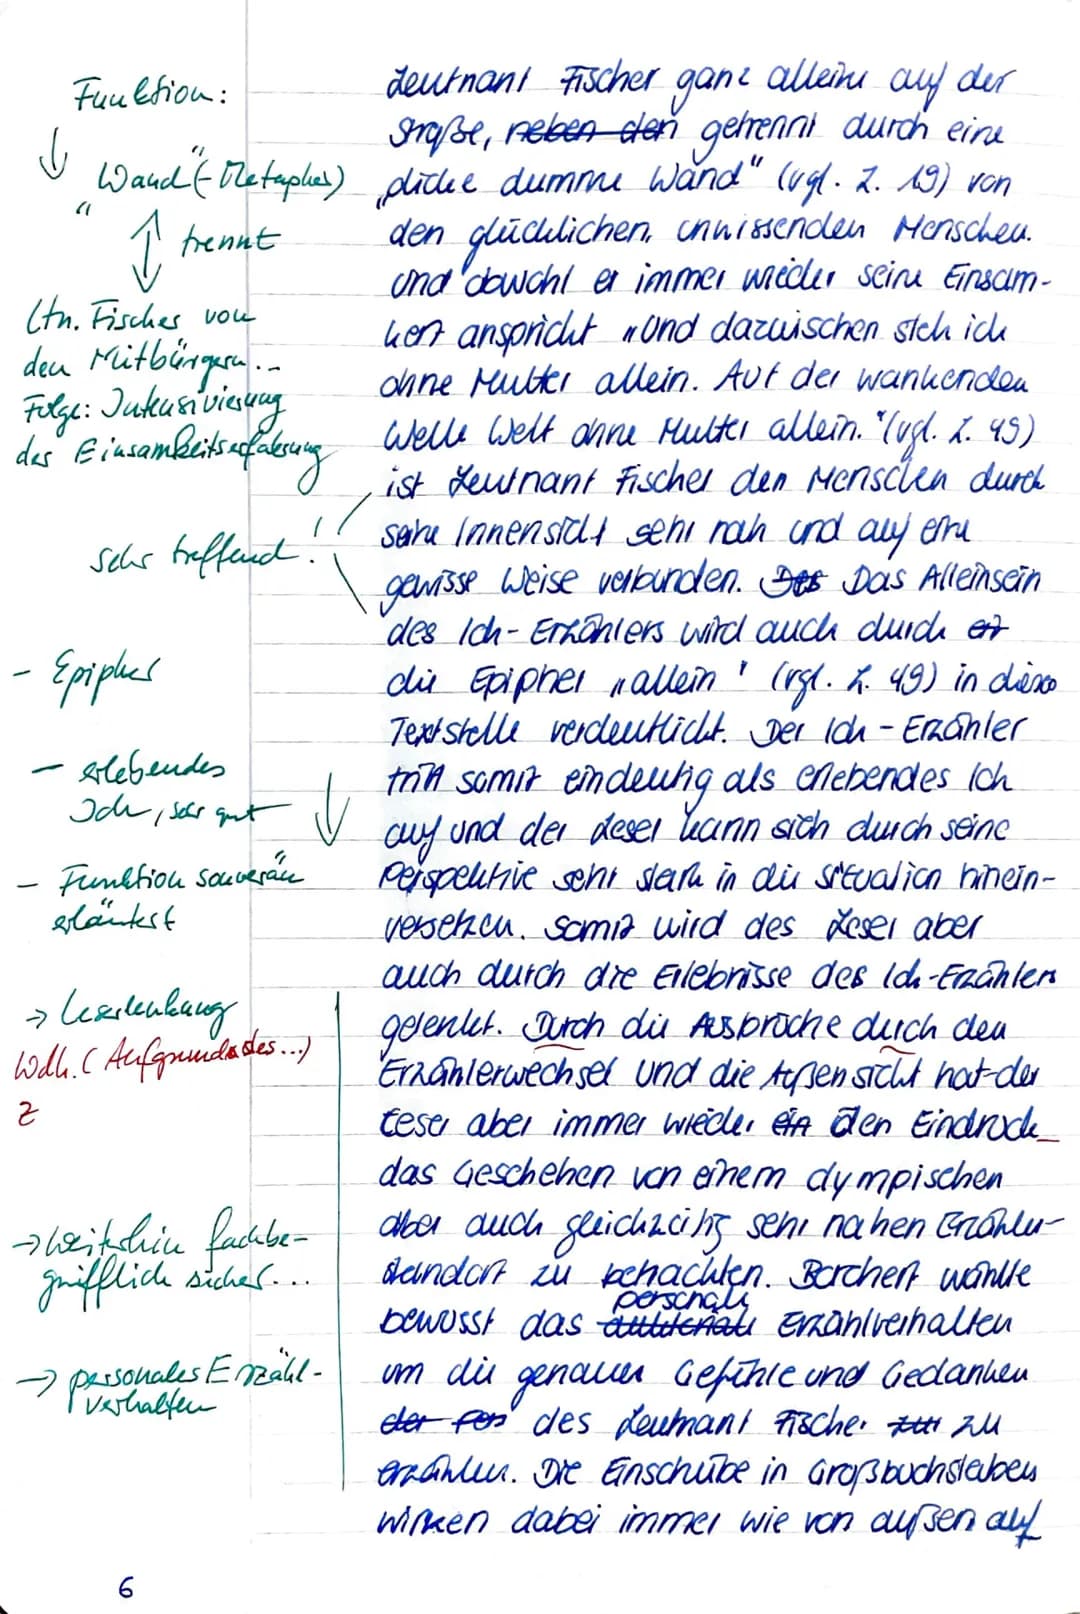 Funktion:
↓ "Wand" (-Metapher)
↕ trennt
Ltn. Fischer von
den Mitbürgern...
Folge: Intensivierung
der Einsamkeitserfahrung
sehr treffend!
- Epipher
- erlebendes
Ich, sehr gut
- Funktion souverän
erläutert
→ Leserlenkung
Wdh. (Aufgrund des...)
Z
→ weiterhin fachbe-
grifflich sicher...
→ personales Erzähl-
verhalten
Leutnant Fischer ganz alleine auf der
Straße, neben den getrennt durch eine
„dicke dumme Wand" (vgl. Z. 19) von
den glücklichen, unwissenden Menschen.
Und obwohl er immer wieder seine Einsam-
keit anspricht „Und dazwischen steh ich
ohne Mutter allein. Auf der wankenden
Welle Welt ohne Mutter allein." (vgl. Z. 49)
ist Leutnant Fischer den Menschen durch
seine Innensicht sehr nah und auf eine
gewisse Weise verbunden. Das Alleinsein
des Ich-Erzählers wird auch durch er
die Epipher „allein" (vgl. Z. 49) in dieser
Textstelle verdeutlicht. Der Ich-Erzähler
tritt somit eindeutig als erlebendes Ich
auf und der Leser kann sich durch seine
Perspektive sehr stark in die Situation hinein-
versetzen. Somit wird des Leser aber
auch durch die Erlebnisse des Ich-Erzählers
gelenkt. Durch die Ausbrüche durch den
Erzählerwechsel und die Außensicht hat der
Leser aber immer wieder ein den Eindruck
das Geschehen von einem olympischen
aber auch gleichzeitig sehr nahen Erzähler-
standort zu betrachten. Borchert wählte
bewusst das personale Erzählverhalten
um die genauen Gefühle und Gedanken
der des Leutnant Fischer zu
erzählen. Die Einschübe in Großbuchstaben
wirken dabei immer wie von außen auf
6